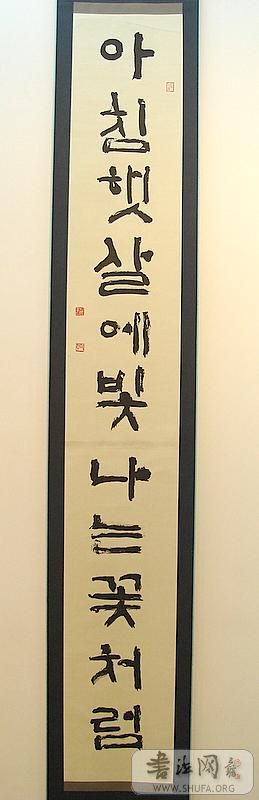 아침햇살에빛나는꽃처럼
書法网
WWW.SHUFA.ORG